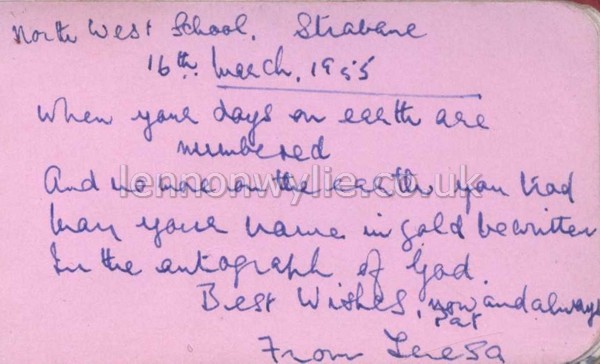 North West School, Strabane
16th March, 1955
When your days on earth are
numbered
And no more on the earth you trod
May your name in gold be written
In the autograph of God.
Best Wishes, now and always
Pat
From Teresa
lennonwylie.co.uk